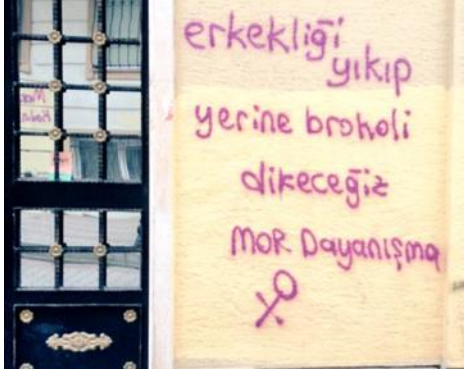 erkekliği
yıkıp
yerine brokoli
dikeceğiz
MOR Dayanışma